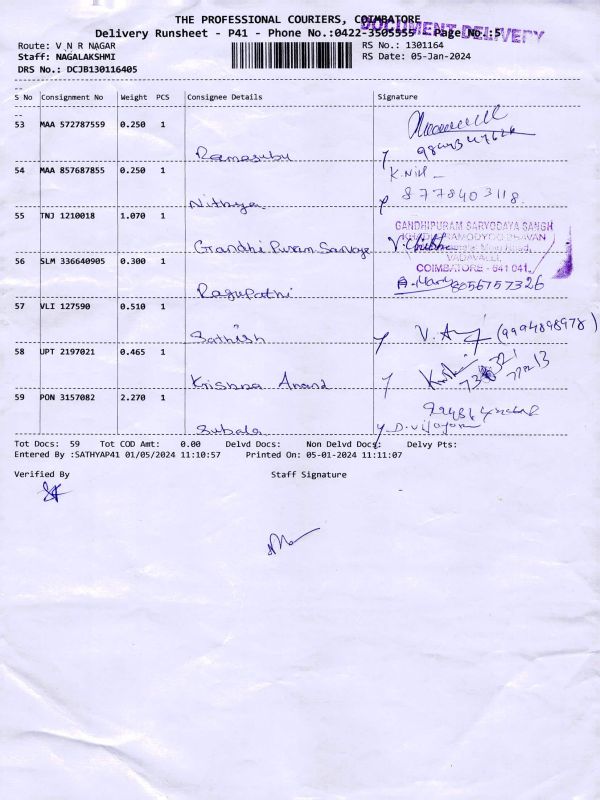 THE PROFESSIONAL COURIERS, COIMBATORE
DOCUMENT DELIVERY
Delivery Runsheet - P41 - Phone No.:0422-3505555 Page No.:5
Route: V N R NAGAR RS No.: 1301164
Staff: NAGALAKSHMI RS Date: 05-Jan-2024
DRS No.: DCJB130116405
S No Consignment No Weight PCS Consignee Details Signature
53 MAA 572787559 0.250 1
Ramasubu
54 MAA 857687855 0.250 1 K.Nith
Nithya 8778403118
55 TNJ 1210018 1.070 1 GANDHIPURAM SARVODAYA SANGH
VADAVALLI,
Gandhi Puram Sarvoye
56 SLM 336640905 0.300 1 COIMBATORE - 641 041.
8056757326
Ragupathi
57 VLI 127590 0.510 1
Sathish V.A (9994898978)
58 UPT 2197021 0.465 1
Krishna Anand
59 PON 3157082 2.270 1
Subala D.Vijayan
Tot Docs: 59 Tot COD Amt: 0.00 Delvd Docs: Non Delvd Docs: Delvy Pts:
Entered By :SATHYAP41 01/05/2024 11:10:57 Printed On: 05-01-2024 11:11:07
Verified By Staff Signature